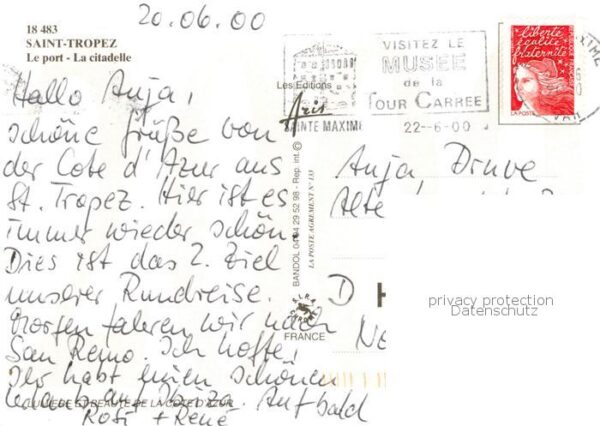 20.06.00
18 483
SAINT-TROPEZ
Le port - La citadelle
Hallo Anja,
schöne Grüße von
der Cote d'Azur aus
St. Tropez. Hier ist es
immer wieder schön.
Dies ist das 2. Ziel
unserer Rundreise.
Morgen fahren wir nach
San Remo. Ich hoffe,
Ihr habt einen schönen
Urlaub auf Ibiza. Auf bald
LUMIERE ET BEAUTE DE LA COTE D'AZUR
Rosi + René
Les Editions
Aris
BANDOL 04 94 29 52 98 - Rep. int. ©
LA POSTE AGREMENT N° 133
FRANCE
SAINTE MAXIME
VISITEZ LE
MUSEE
de la
TOUR CARREE
22-6-00
liberté
égalité
fraternité
LA POSTE
VAR
Anja Druve
Alte
D
privacy protection
Datenschutz